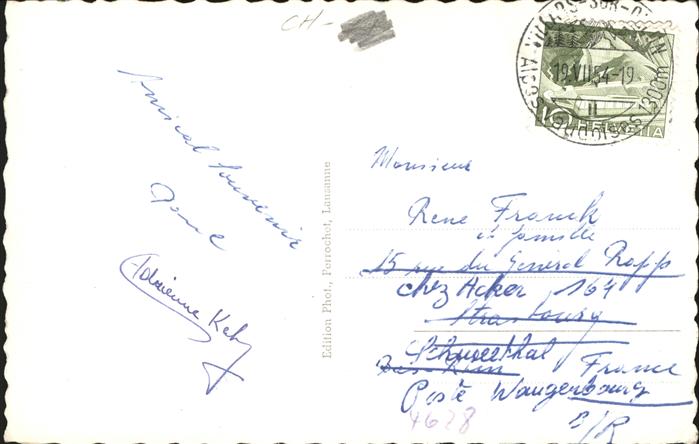 CH-
VILLARS-SUR-OLLON
19.VII.54-19
ALPES VAUDOISES 1300m
10 HELVETIA
Amical Souvenir
Adrienne
Edition Phot., Perrochet, Lausanne
Monsieur
Rene Franck
et famille
15 rue du General Rapp
chez Acker 164
Strasbourg
Bas-Rhin France
Poste Wangenbourg
B/R
4628